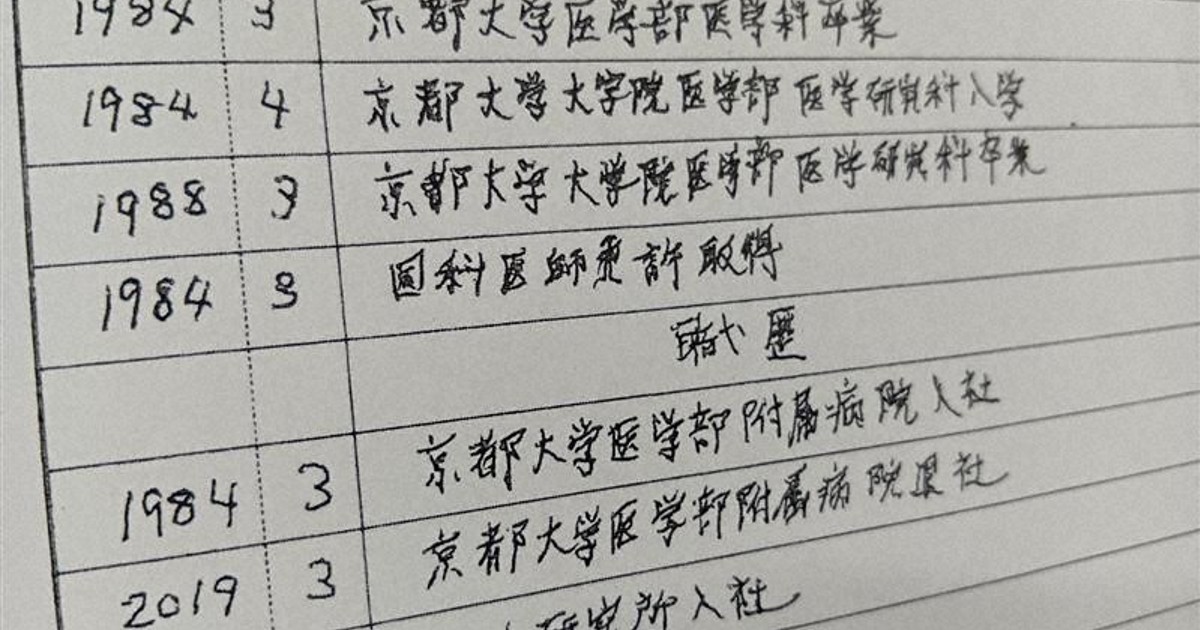 1984 3 京都大学医学部医学科卒業
1984 4 京都大学大学院医学部医学研究科入学
1988 3 京都大学大学院医学部医学研究科卒業
1984 3 医師免許取得
職歴
1984 3 京都大学医学部附属病院入社
2019 3 京都大学医学部附属病院退社
研究所入社